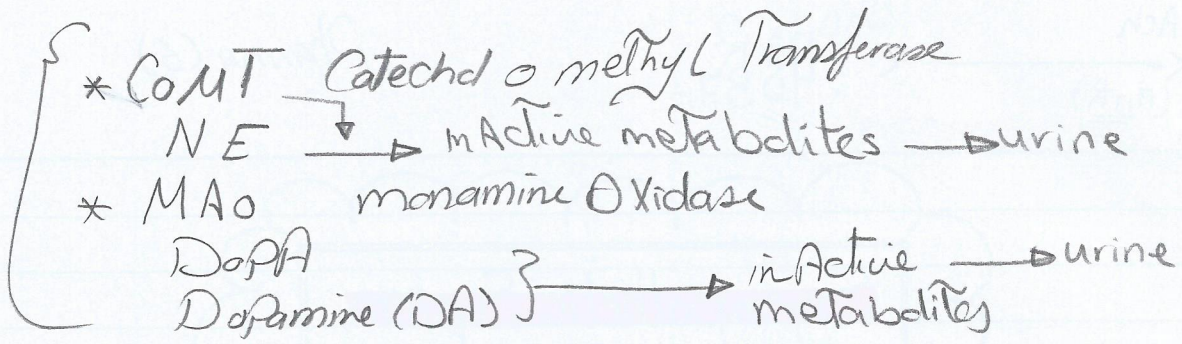 * COMT Catechol o methyl Transferase
NE → inActive metabolites → urine
* MAO monamine Oxidase
DoPA
Dopamine (DA) } → inActive → urine
metabolites